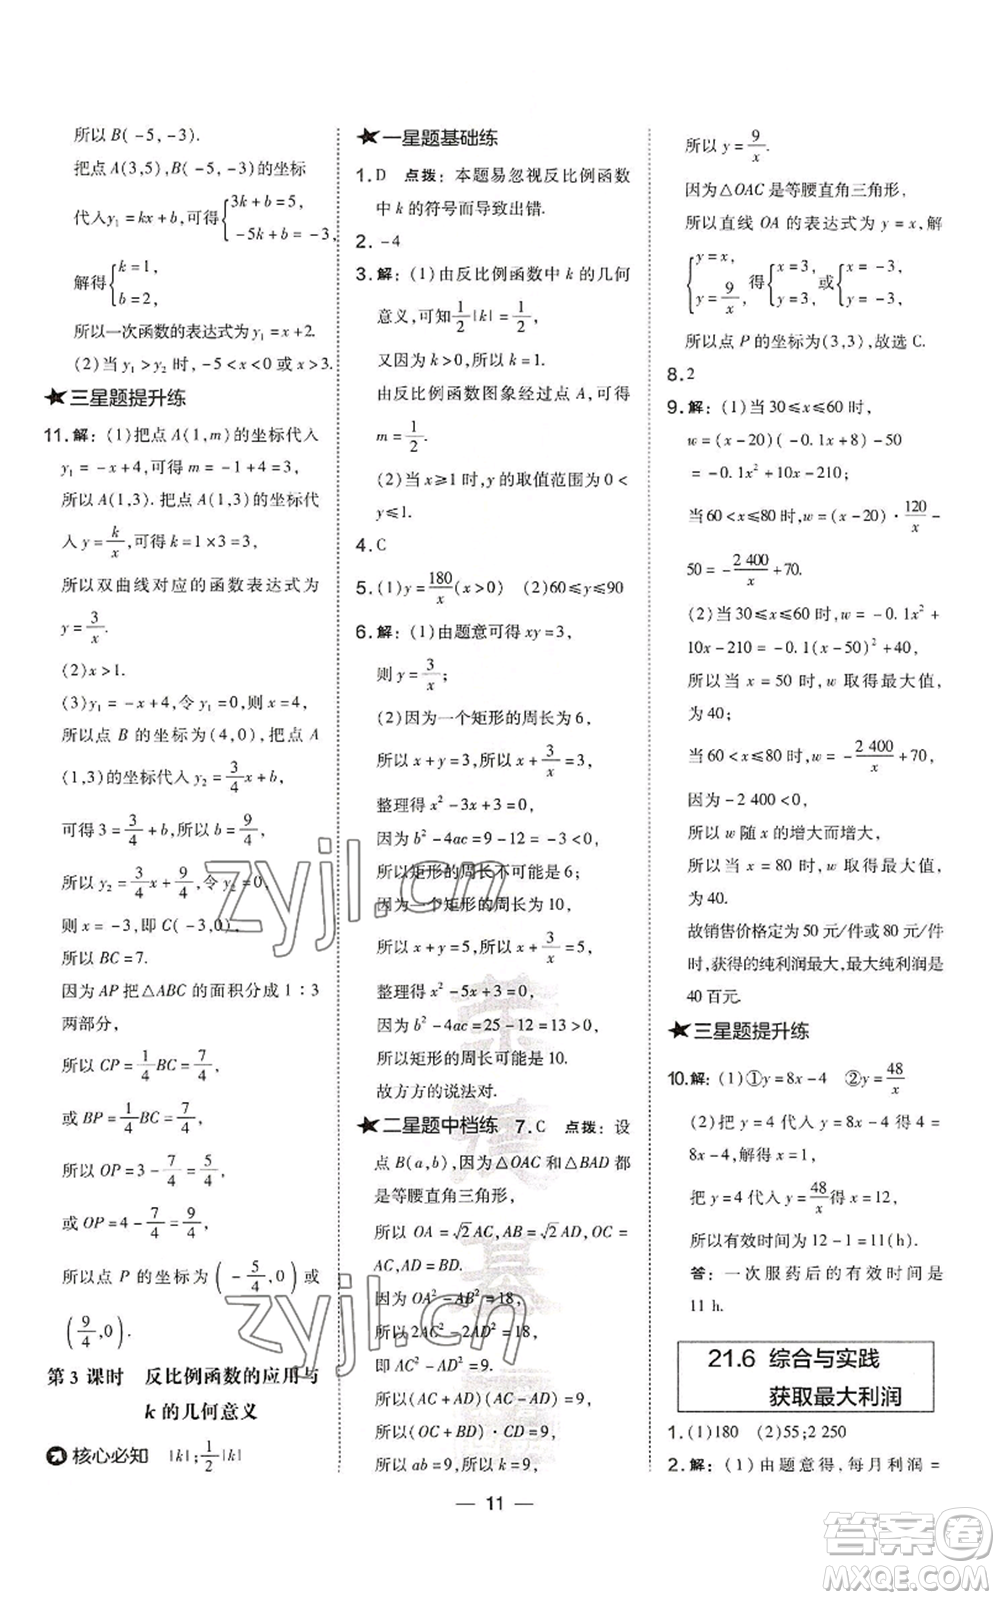 所以 B(-5,-3).
把点 A(3,5),B(-5,-3)的坐标
代入y₁=kx+b,可得{3k+b=5,
-5k+b=-3,
解得{k=1,
b=2,
所以一次函数的表达式为 y₁=x+2.
(2)当 y₁>y₂ 时,-5<x<0或x>3.
★三星题提升练
11.解:(1)把点 A(1,m)的坐标代入
y₁=-x+4,可得 m=-1+4=3,
所以 A(1,3).把点 A(1,3)的坐标代
入 y=k/x,可得 k=1×3=3,
所以双曲线对应的函数表达式为
y=3/x.
(2)x>1.
(3)y₁=-x+4,令 y₁=0,则 x=4,
所以点 B 的坐标为(4,0),把点 A
(1,3)的坐标代入 y₂=3/4x+b,
可得 3=3/4+b,所以 b=9/4,
所以 y₂=3/4x+9/4,令 y₂=0,
则 x=-3,即 C(-3,0),
所以 BC=7.
因为 AP 把△ABC 的面积分成 1:3
两部分,
所以 CP=1/4BC=7/4,
或 BP=1/4BC=7/4,
所以 OP=3-7/4=5/4,
或 OP=4-7/4=9/4,
所以点 P 的坐标为(-5/4,0)或
(9/4,0).
第 3 课时 反比例函数的应用与
k 的几何意义
核心必知 |k|;1/2|k|
★一星题基础练
1.D 点拨:本题易忽视反比例函数
中 k 的符号而导致出错.
2.-4
3.解:(1)由反比例函数中 k 的几何
意义,可知1/2|k|=1/2,
又因为 k>0,所以 k=1.
由反比例函数图象经过点A,可得
m=1/2.
(2)当 x≥1 时,y 的取值范围为 0<
y≤1.
4.C
5.(1)y=180/x(x>0) (2)60≤y≤90
6.解:(1)由题意可得 xy=3,
则 y=3/x;
(2)因为一个矩形的周长为 6,
所以 x+y=3,所以 x+3/x=3,
整理得 x²-3x+3=0,
因为 b²-4ac=9-12=-3<0,
所以矩形的周长不可能是 6;
因为一个矩形的周长为 10,
所以 x+y=5,所以 x+3/x=5,
所以 x²-5x+3=0,
因为 b²-4ac=25-12=13>0,
所以矩形的周长可能是 10.
故方方的说法对.
★二星题中档练 7.C 点拨:设
点 B(a,b),因为△OAC 和△BAD 都
是等腰直角三角形,
所以 OA=√2AC,AB=√2AD,OC=
AC,AD=BD.
因为 OA²-AB²=18,
所以 2AC²-2AD²=18,
即 AC²-AD²=9.
所以(AC+AD)(AC-AD)=9,
所以(OC+BD)·CD=9,
所以 ab=9,所以 k=9,
所以 y=9/x.
因为△OAC 是等腰直角三角形,
所以直线 OA 的表达式为 y=x,解
{y=x,
y=9/x,得{x=3,
y=3,或{x=-3,
y=-3.
所以点 P 的坐标为(3,3),故选 C.
8.2
9.解:(1)当 30≤x≤60 时,
w=(x-20)(-0.1x+8)-50
=-0.1x²+10x-210;
当 60<x≤80 时,w=(x-20)·120/x-
50=-2 400/x+70.
(2)当 30≤x≤60 时,w=-0.1x²+
10x-210=-0.1(x-50)²+40,
所以当 x=50 时,w 取得最大值,
为 40;
当 60<x≤80时,w=-2 400/x+70,
因为-2 400<0,
所以 w 随 x 的增大而增大,
所以当 x=80 时,w 取得最大值,
为 40.
故销售价格定为 50 元/件或 80 元/件
时,获得的纯利润最大,最大纯利润是
40 百元.
★三星题提升练
10.解:(1)①y=8x-4 ②y=48/x
(2)把 y=4 代入 y=8x-4 得 4=
8x-4,解得 x=1,
把 y=4 代入 y=48/x得 x=12,
所以有效时间为 12-1=11(h).
答:一次服药后的有效时间是
11 h.
21.6 综合与实践
获取最大利润
1.(1)180 (2)55;2 250
2.解:(1)由题意得,每月利润=
— 11 —
zyjl.cn
zyjl.cn
答案卷
MXQE.COM